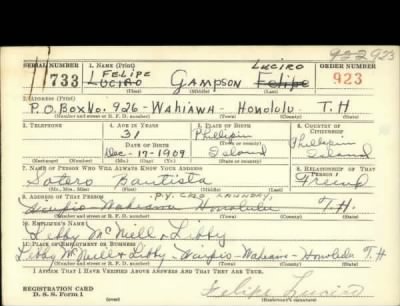 922923
SERIAL NUMBER 1. NAME (Print) LUCIRO ORDER NUMBER
733 FELIPE LUCIRO GAMPSON Felipe 923
(First) (Middle) (Last)
2. ADDRESS (Print)
P.O. Box No. 926 - WAHIAWA - HONOLULU T.H
(Number and street or R. F. D. number) (Town) (County) (State)
3. TELEPHONE 4. AGE IN YEARS 5. PLACE OF BIRTH 6. COUNTRY OF CITIZENSHIP
31 Phillipin Phillipin
DATE OF BIRTH Island Island
Dec - 17 - 1909
(Exchange) (Number) (Mo.) (Day) (Yr.) (State or country)
7. NAME OF PERSON WHO WILL ALWAYS KNOW YOUR ADDRESS 8. RELATIONSHIP OF THAT PERSON
Sotero Bautista Friend
(Mr., Mrs., Miss) (First) (Middle) (Last)
9. ADDRESS OF THAT PERSON
Waipio Wahiawa Honolulu T.H.
(Number and street or R. F. D. number) (Town) (County) (State)
10. EMPLOYER'S NAME
Libby McNeill & Libby
11. PLACE OF EMPLOYMENT OR BUSINESS
Libby McNeill & Libby - Waipio - Wahiawa - Honolulu T.H
(Number and street or R. F. D. number) (Town) (County) (State)
I AFFIRM THAT I HAVE VERIFIED ABOVE ANSWERS AND THAT THEY ARE TRUE.
REGISTRATION CARD
D. S. S. Form 1 Felipe Luciro